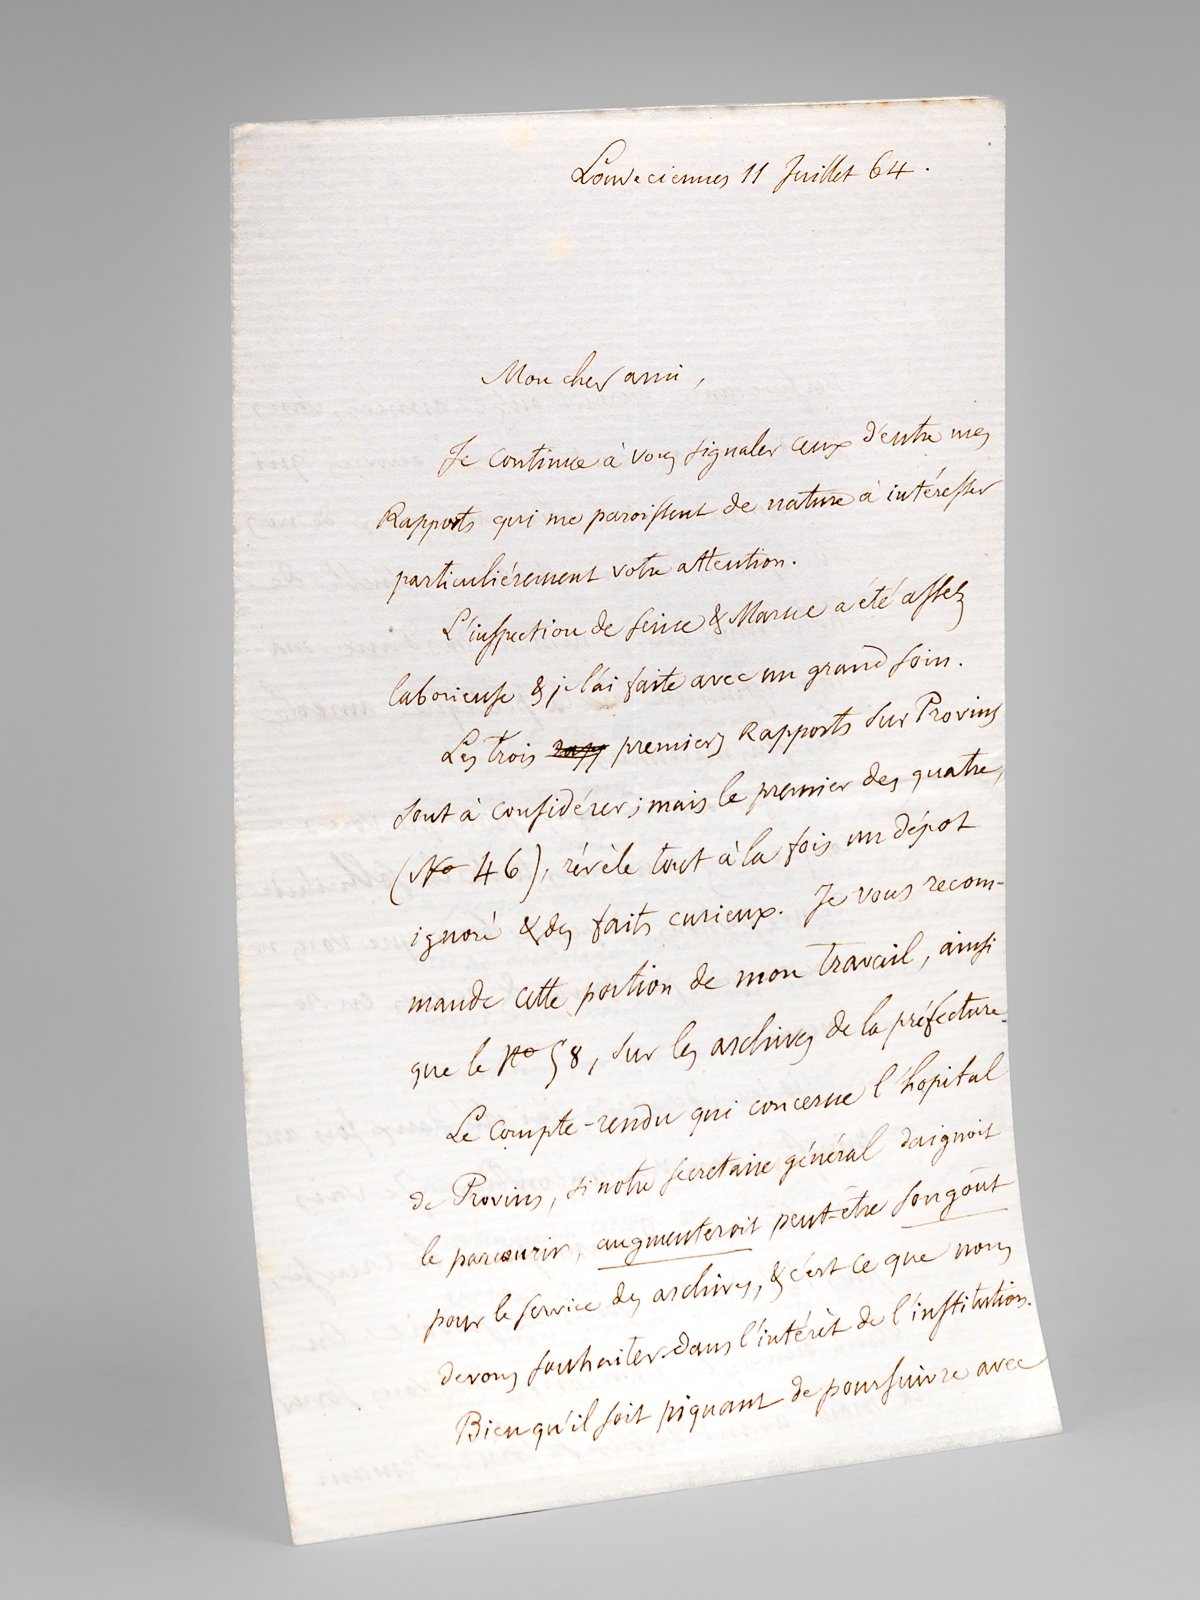 Louveciennes 11 Juillet 64.
Mon cher ami,
Je continue à vous signaler ceux d'entre mes
Rapports qui me paroissent de nature à intéresser
particuliérement votre attention.
L'inspection de Seine & Marne a été assez
laborieuse & je l'ai faite avec un grand soin.
Les trois rapp premiers Rapports sur Provins
sont à considérer; mais le premier des quatre,
(No 46), révèle tout à la fois un dépot
ignoré & des faits curieux. Je vous recom-
mande cette portion de mon travail, ainsi
que le No 58, sur les archives de la préfecture.
Le compte-rendu qui concerne l'hopital
de Provins, si notre secretaire général daignoit
le parcourir, augmenteroit peut-être son goût
pour le service des archives, & c'est ce que nous
devons souhaiter dans l'intérèt de l'institution.
Bien qu'il soit piquant de poursuivre avec